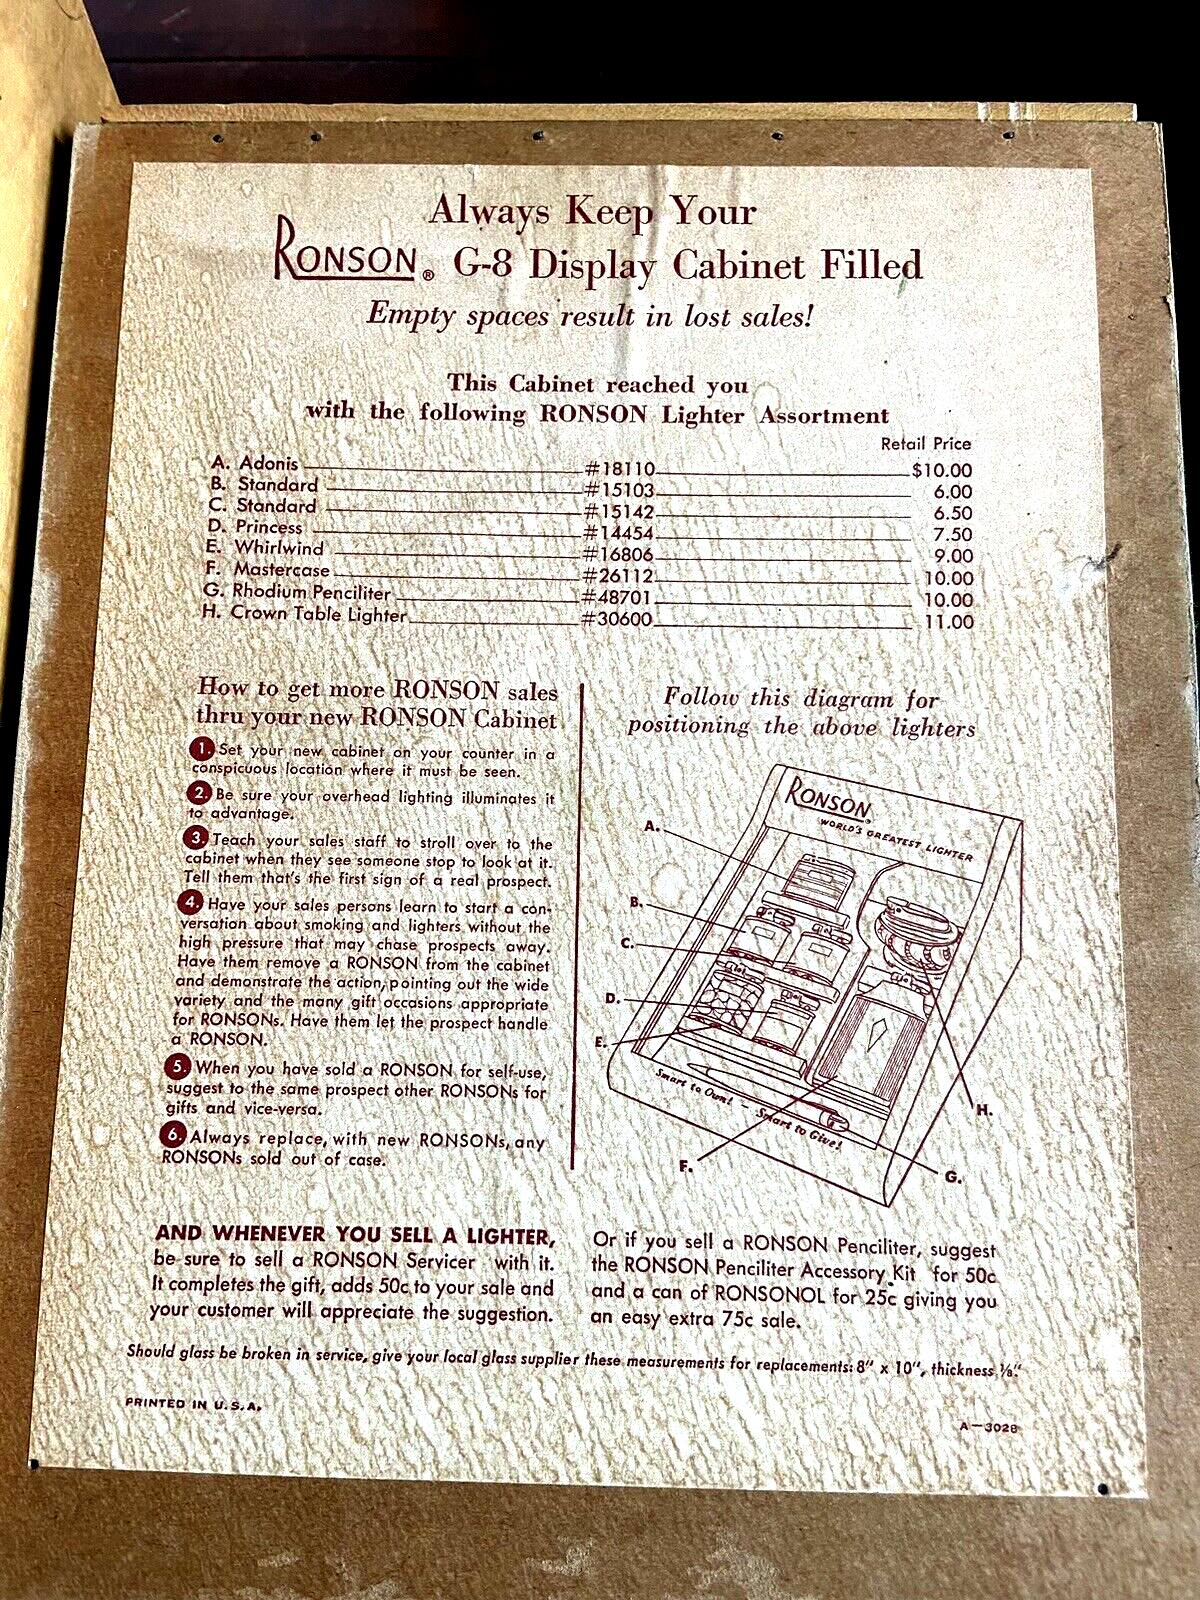 Always Keep Your
RONSON® G-8 Display Cabinet Filled
Empty spaces result in lost sales!
This Cabinet reached you
with the following RONSON Lighter Assortment
Retail Price
A. Adonis #18110 $10.00
B. Standard #15103 6.00
C. Standard #15142 6.50
D. Princess #14454 7.50
E. Whirlwind #16806 9.00
F. Mastercase #26112 10.00
G. Rhodium Penciliter #48701 10.00
H. Crown Table Lighter #30600 11.00
How to get more RONSON sales
thru your new RONSON Cabinet
1. Set your new cabinet on your counter in a
conspicuous location where it must be seen.
2. Be sure your overhead lighting illuminates it
to advantage.
3. Teach your sales staff to stroll over to the
cabinet when they see someone stop to look at it.
Tell them that's the first sign of a real prospect.
4. Have your sales persons learn to start a con-
versation about smoking and lighters without the
high pressure that may chase prospects away.
Have them remove a RONSON from the cabinet
and demonstrate the action, pointing out the wide
variety and the many gift occasions appropriate
for RONSONs. Have them let the prospect handle
a RONSON.
5. When you have sold a RONSON for self-use,
suggest to the same prospect other RONSONs for
gifts and vice-versa.
6. Always replace, with new RONSONs, any
RONSONs sold out of case.
Follow this diagram for
positioning the above lighters
RONSON®
WORLD'S GREATEST LIGHTER
A.
B.
C.
D.
E.
Smart to Own! - Smart to Give!
H.
F.
G.
AND WHENEVER YOU SELL A LIGHTER,
be sure to sell a RONSON Servicer with it.
It completes the gift, adds 50c to your sale and
your customer will appreciate the suggestion.
Or if you sell a RONSON Penciliter, suggest
the RONSON Penciliter Accessory Kit for 50c
and a can of RONSONOL for 25c giving you
an easy extra 75c sale.
Should glass be broken in service, give your local glass supplier these measurements for replacements: 8" x 10", thickness ⅛".
PRINTED IN U.S.A.
A—3028